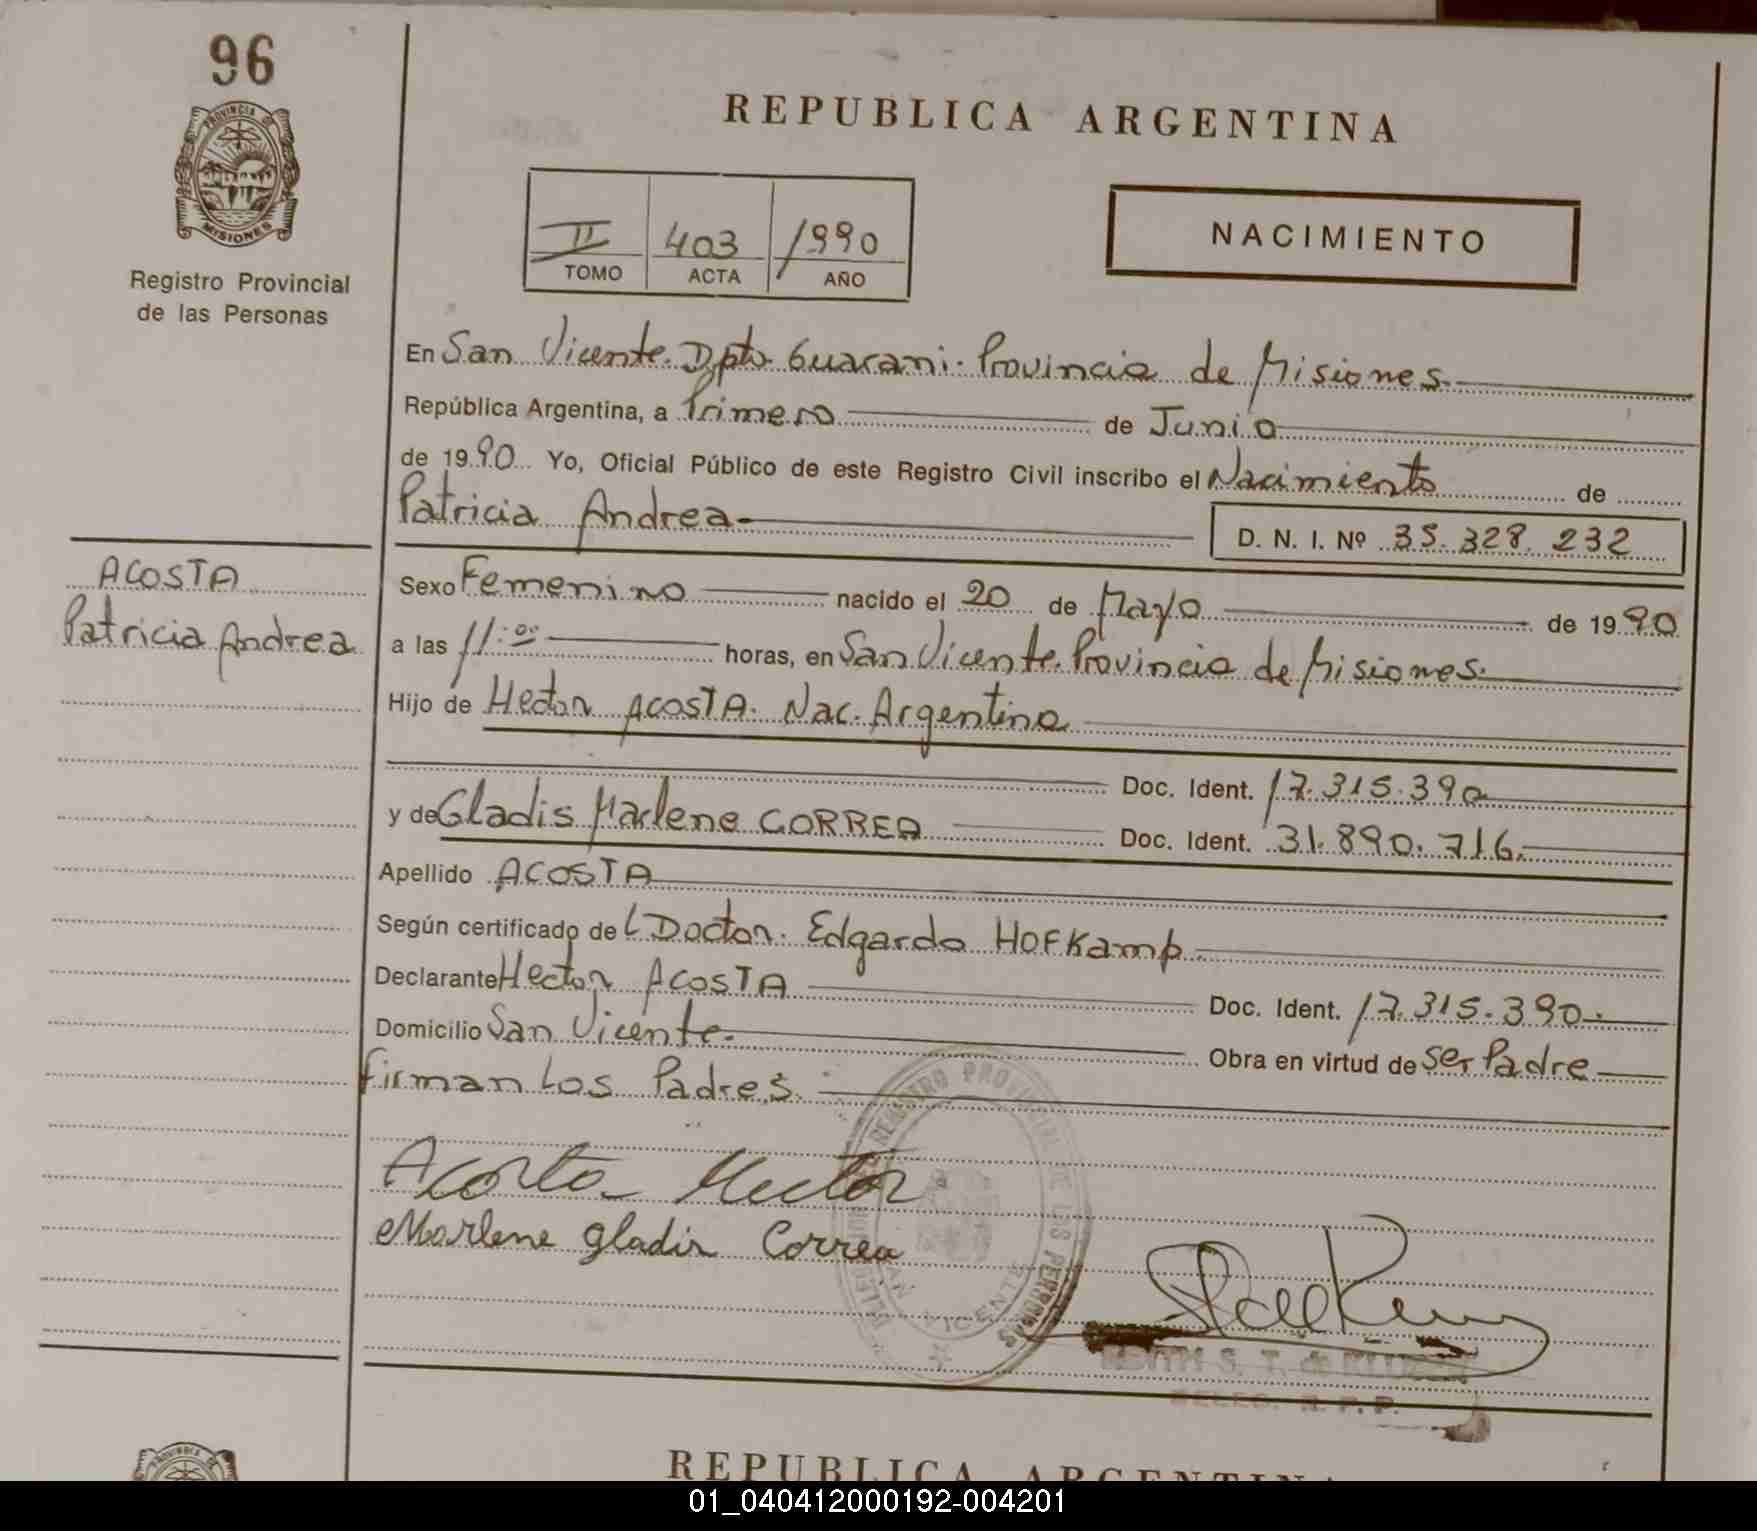 96
PROVINCIA DE
MISIONES
Registro Provincial
de las Personas
REPUBLICA ARGENTINA
II 403 1990
TOMO ACTA AÑO
NACIMIENTO
En San Vicente. Dpto. Guarani. Provincia de Misiones.
República Argentina, a Primero de Junio
de 1990 Yo, Oficial Público de este Registro Civil inscribo el Nacimiento de
Patricia Andrea
D. N. I. Nº 35.328.232
ACOSTA
Patricia Andrea
Sexo Femenino nacido el 20 de Mayo de 1990
a las 11:00 horas, en San Vicente. Provincia de Misiones.
Hijo de Hector ACOSTA. Nac. Argentina
Doc. Ident. 17.315.390
y de Gladis Marlene CORREA Doc. Ident. 31.890.716.
Apellido ACOSTA
Según certificado de L Doctor. Edgardo HOFKamp.
Declarante Hector ACOSTA Doc. Ident. 17.315.390.
Domicilio San Vicente. Obra en virtud de ser Padre
firman Los Padres.
Acosta Hector
Marlene Gladis Correa
REGISTRO PROVINCIAL DE LAS PERSONAS
SAN VICENTE
EDITH S. T. de
DELEG. R. P. P.
REPUBLICA ARGENTINA
01_040412000192-004201